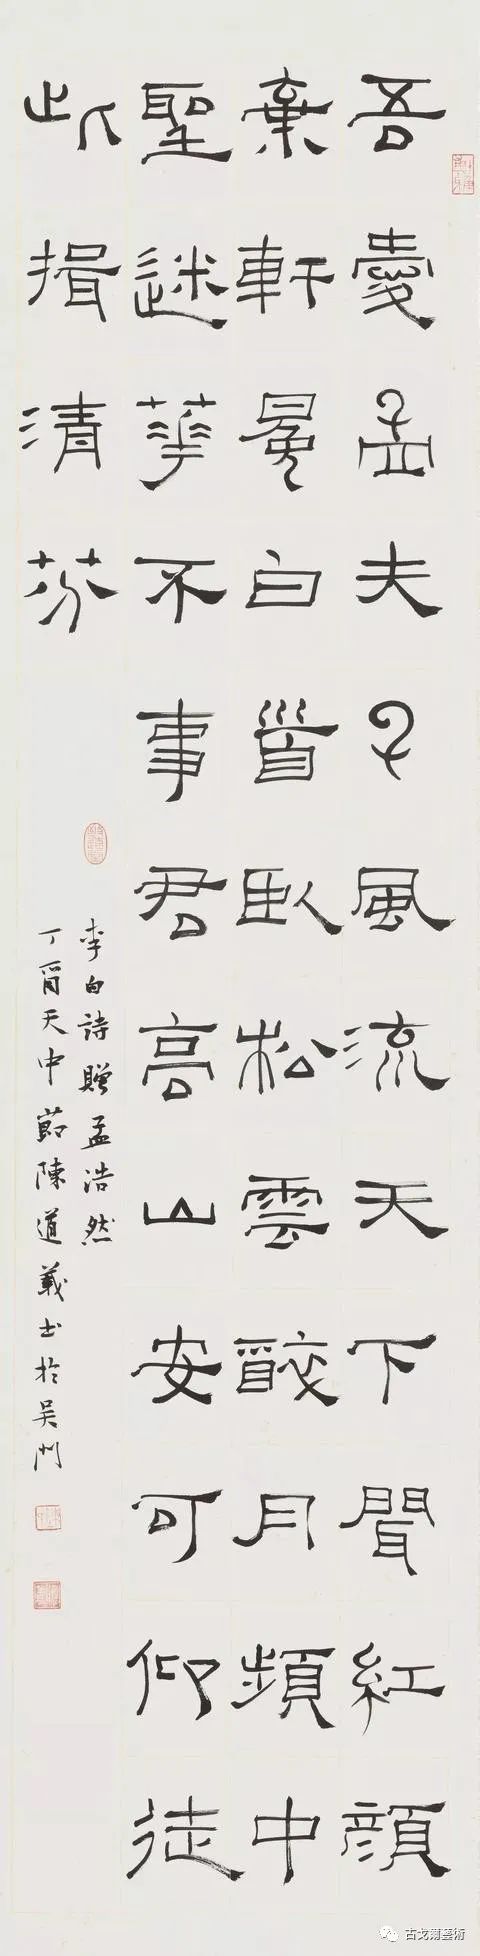 吾愛孟夫子風流天下聞紅顏
棄軒冕白首臥松雲醉月頻中
聖迷華不事君高山安可仰徒
此揖清芬
李白詩贈孟浩然
丁酉天中節陳道義书於吴門
古戈爾藝術